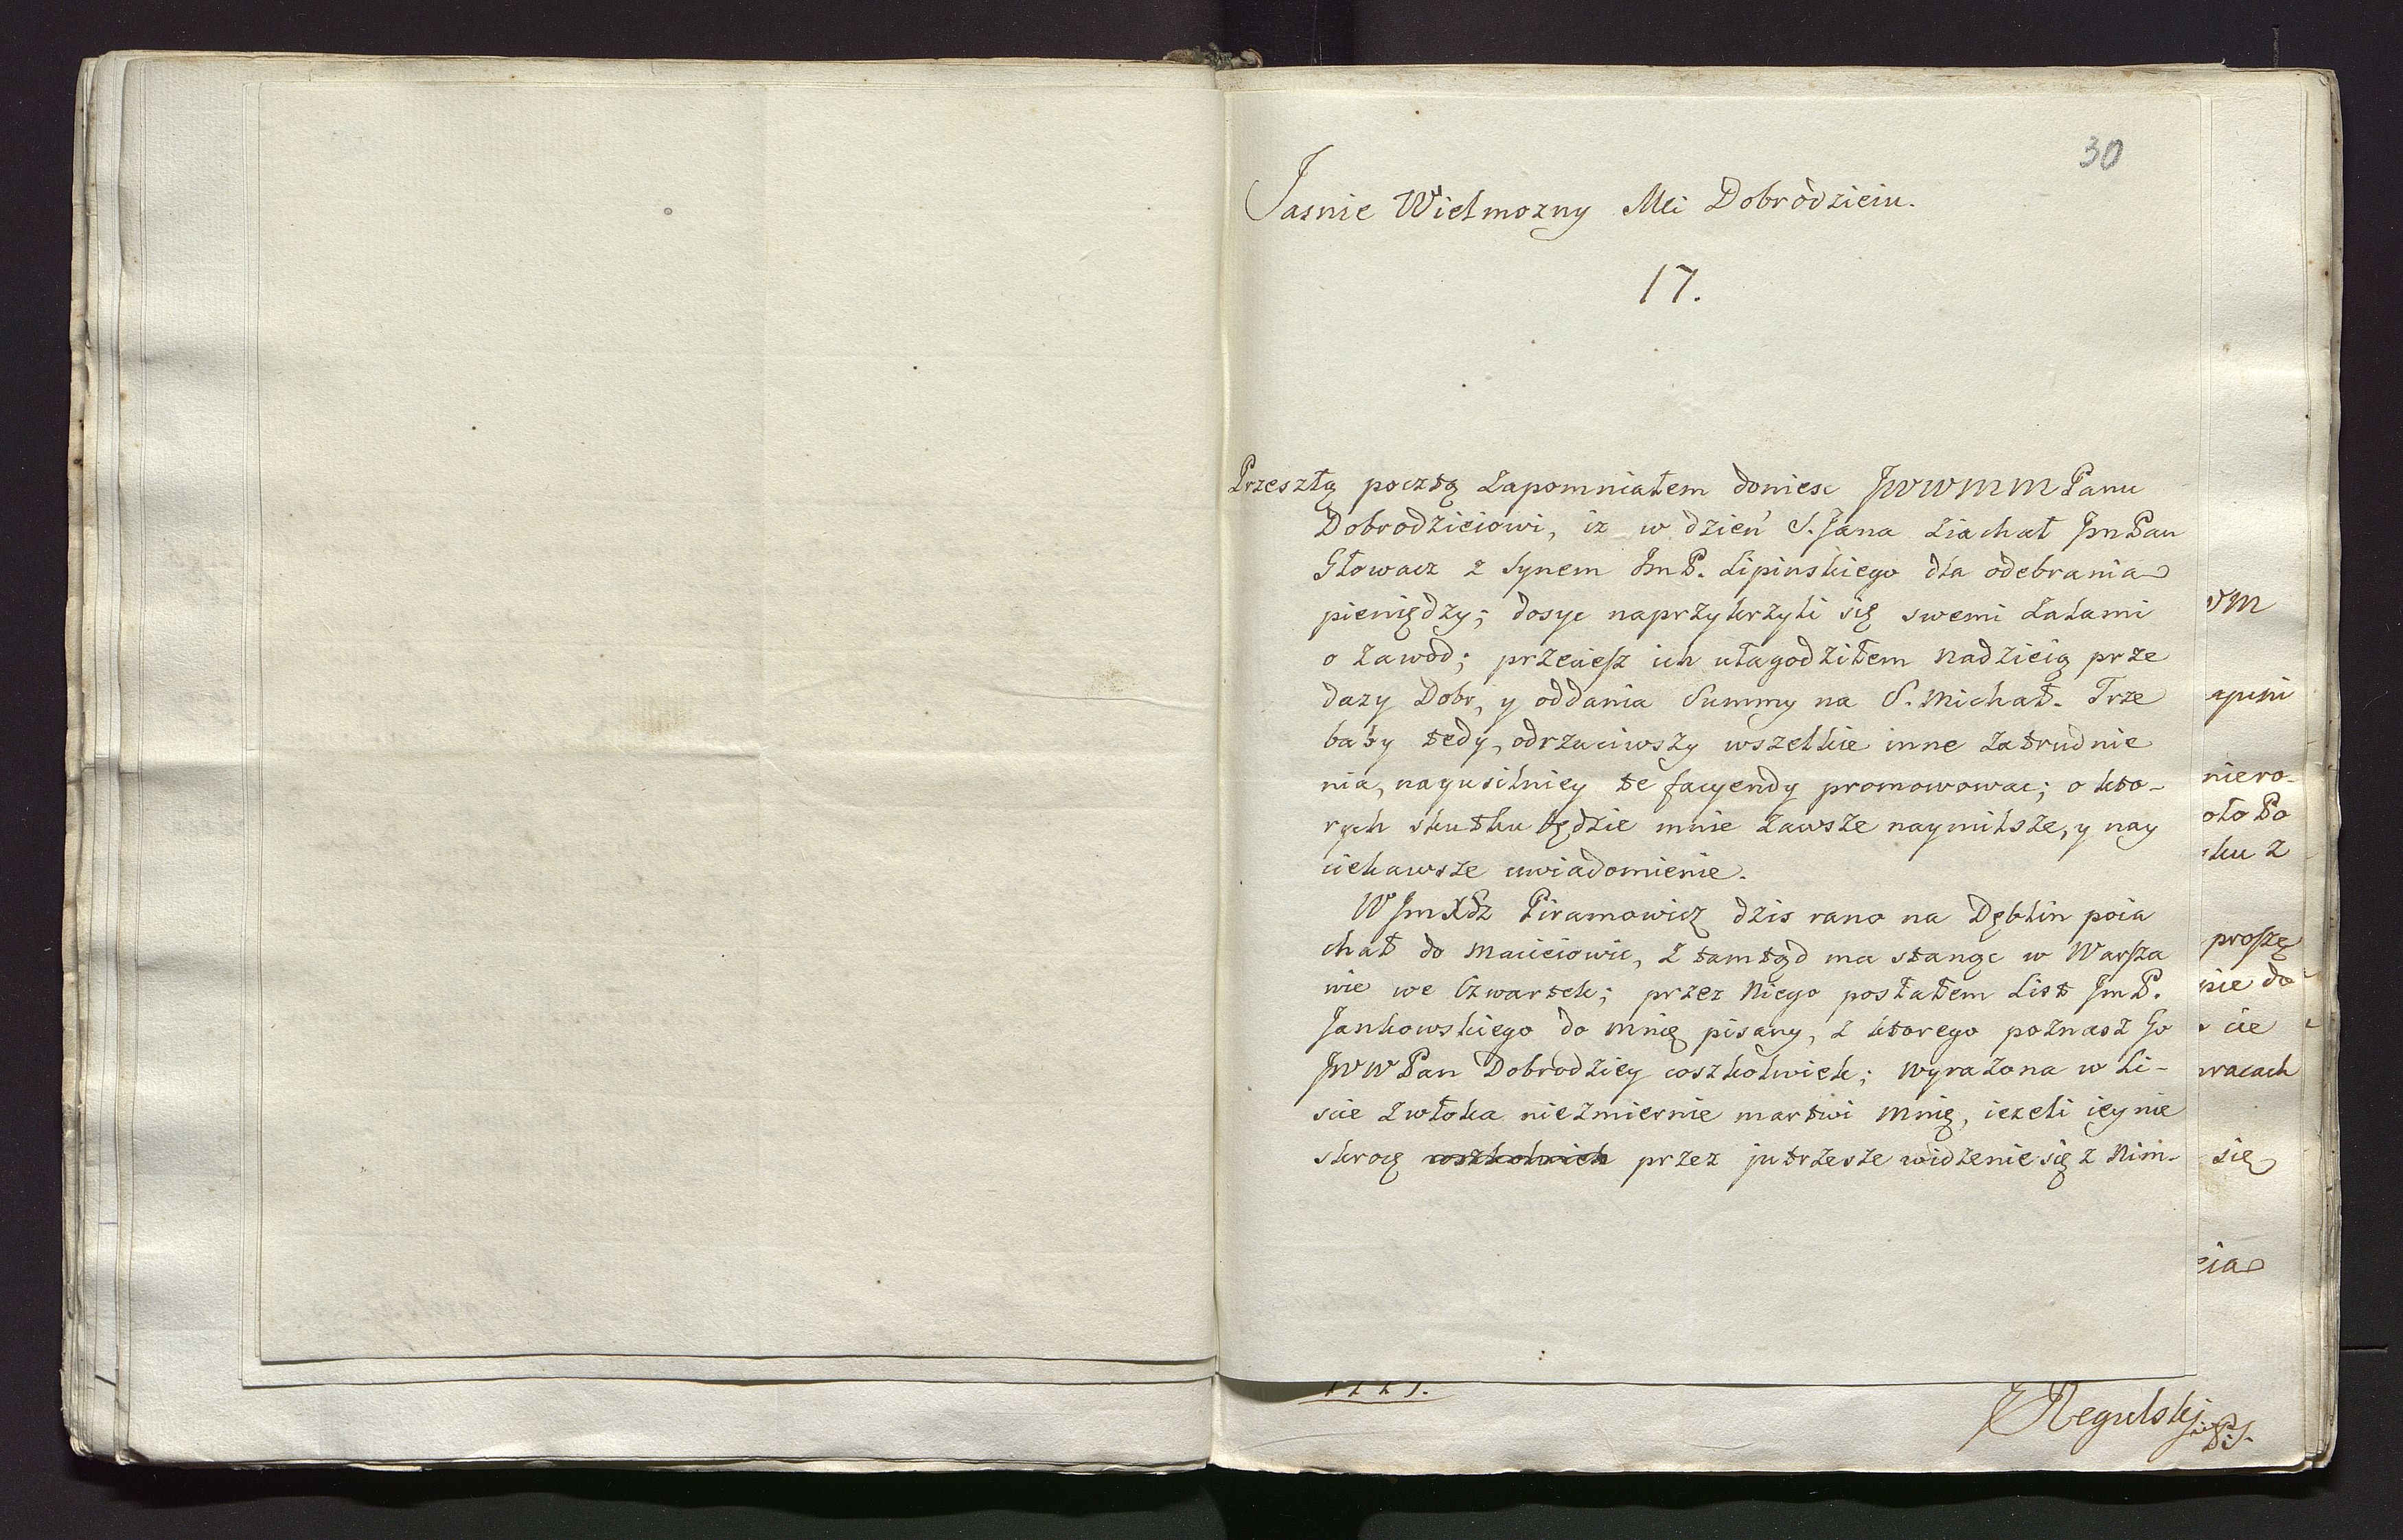 30
Jasnie Wielmozny Mci Dobròdzieiu.
17.
Przeszłą pocztą zapomniałem doniesc JWWMM Panu
Dobrodzieiowi, iz w dzień S. Jana ziachał JmPan
Głowacz z Synem JmP. Lipinskiego dla odebrania
pieniędzy; dosyc naprzykrzyli się swemi żalami
o zawod; przeciesz ich ułagodziłem nadzieią prze
dazy Dobr, y oddania Summy na S. Michał. Trze
baby tedy, odrzuciwszy wszelkie inne zatrudnie
nia, nayusilniey te facyendy promowowac; o kto-
rych skutku będzie mnie zawsze naymilsze, y nay
ciekawsze uwiadomienie.
W JmXdz Piramowicz dzis rano na Dęblin poia
chał do Macieiowic, z tamtąd ma stanąc w Warsza
wie we Czwartek; przez Niego posłałem List JmP.
Jankowskiego do mnię pisany, z ktorego poznasz Go
JWWPan Dobrodziey coszkolwiek; wyrazona w Li-
scie zwłoka niezmiernie martwi mnię, iezeli iey nie
skrocę coszkolwiek przez jutrzesze widzenie się z Nim.
vM
niero-
oło Po
ku z
proszę
nie do
cie
racach
się
cia
Regulskj